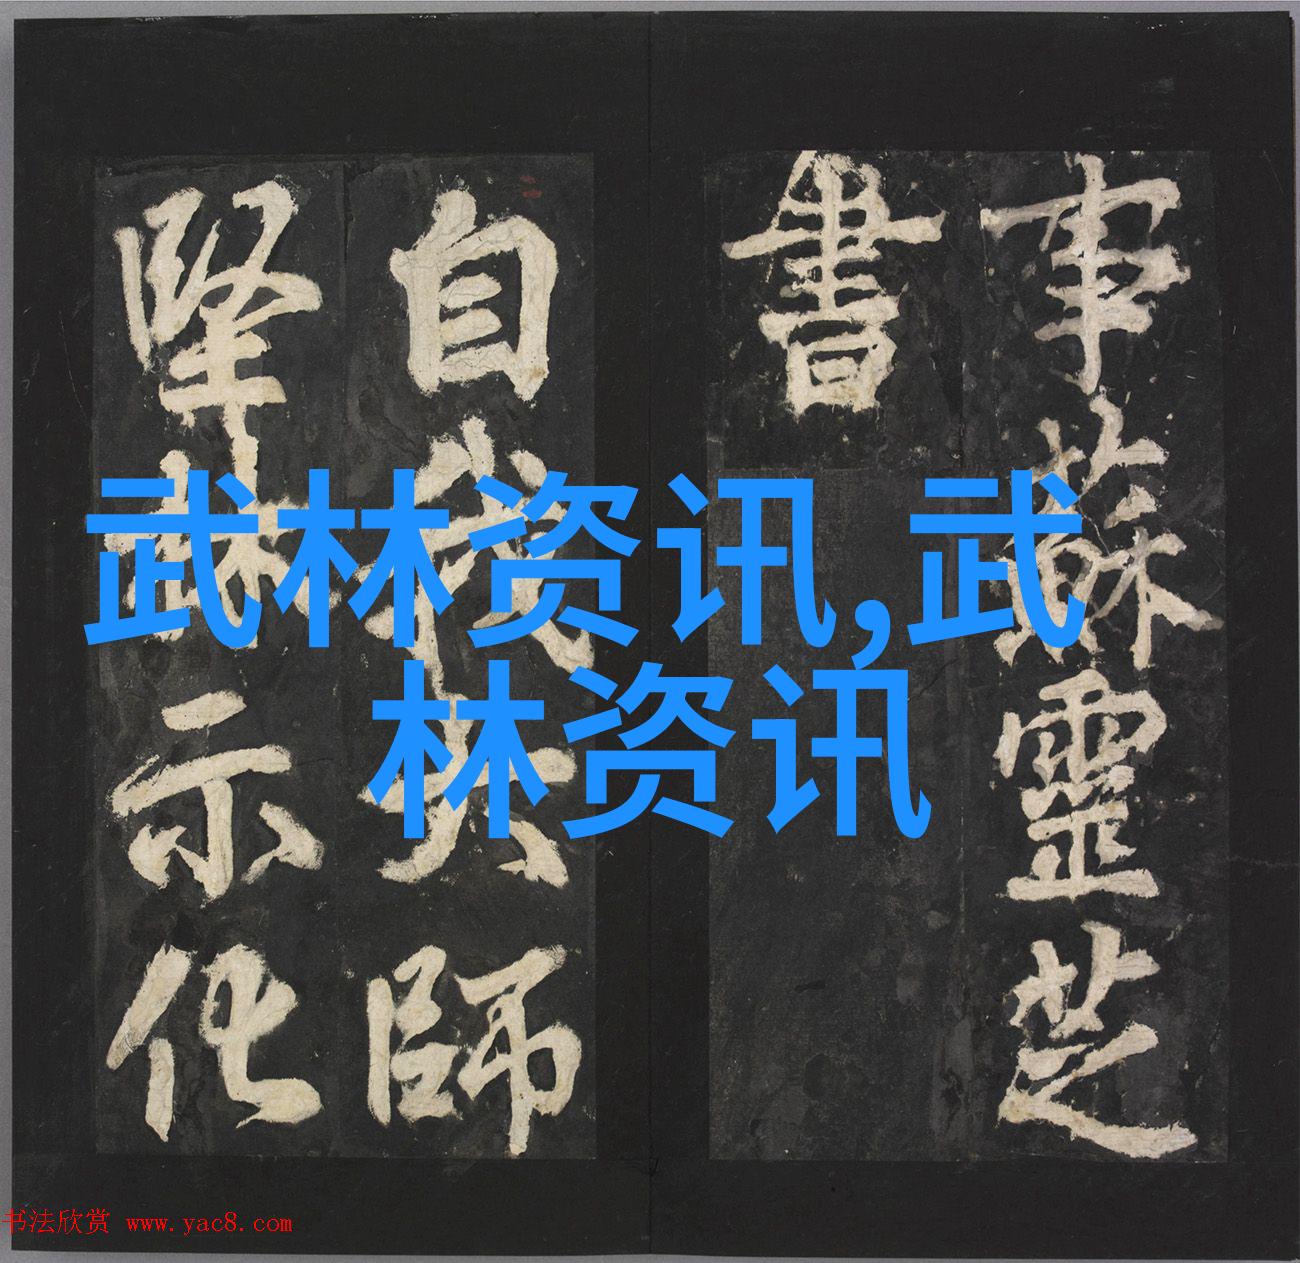 事蘇靈芝
書
自我大師
堅林示化
武林资讯,武
林资讯
书法欣赏 www.yac8.com